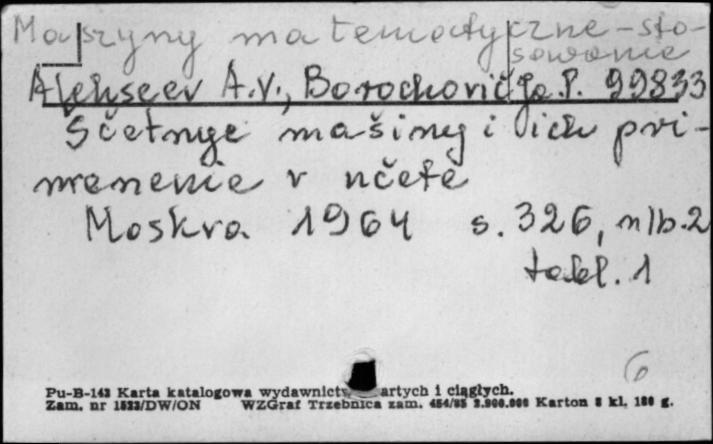 Maszyny matematyczne - sto-
sowanie
Alekseev A.V., Borochovič Ja. P. 99833
Sčetnye mašiny i ich pri-
menenie v učete
Moskva 1964 s. 326, nlb. 2
tabl. 1
6
Pu-B-143 Karta katalogowa wydawnictw artych i ciągłych.
Zam. nr 1523/DW/ON WZGraf Trzebnica zam. 454/85 2.900.000 Karton 8 kl. 180 g.